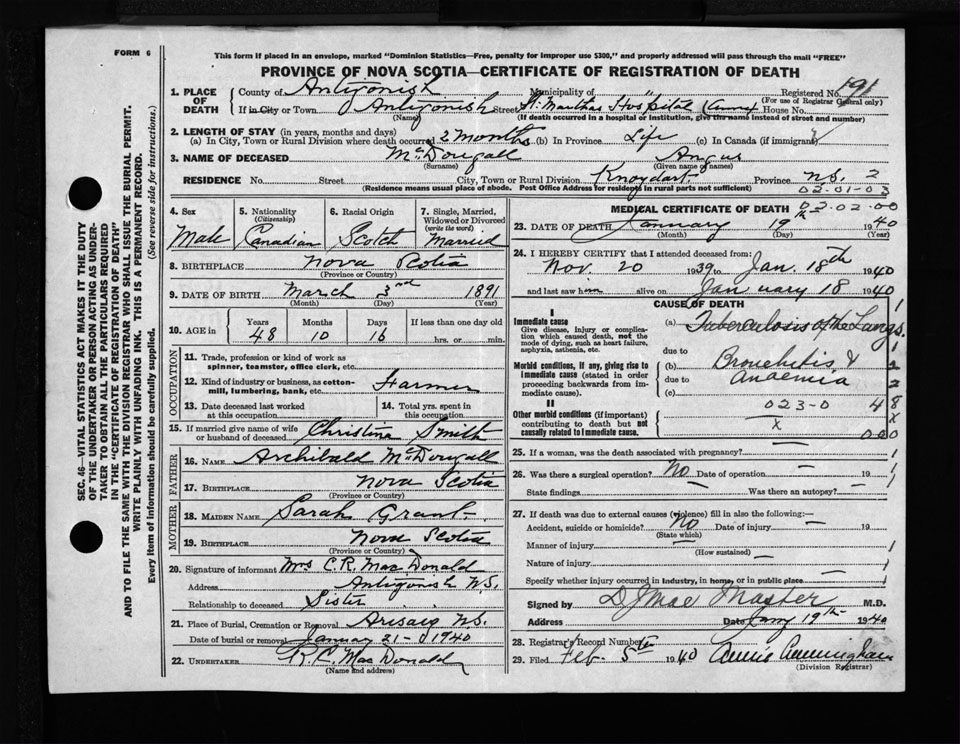 FORM 6
This form if placed in an envelope, marked "Dominion Statistics—Free, penalty for improper use $300," and properly addressed will pass through the mail "FREE"
PROVINCE OF NOVA SCOTIA—CERTIFICATE OF REGISTRATION OF DEATH
SEC. 46—VITAL STATISTICS ACT MAKES IT THE DUTY
OF THE UNDERTAKER OR PERSON ACTING AS UNDER-
TAKER TO OBTAIN ALL THE PARTICULARS REQUIRED
IN THE "CERTIFICATE OF REGISTRATION OF DEATH"
AND TO FILE THE SAME WITH THE DIVISION REGISTRAR WHO SHALL ISSUE THE BURIAL PERMIT.
WRITE PLAINLY WITH UNFADING INK. THIS IS A PERMANENT RECORD.
Every item of information should be carefully supplied. (See reverse side for instructions.)
1. PLACE OF DEATH
County of Antigonish Municipality of " Registered No. 191
(For use of Registrar General only)
If in City or Town Antigonish Street St. Marthas Hospital (Annex) House No.
(Name) (If death occurred in a hospital or institution, give the name instead of street and number)
2. LENGTH OF STAY (in years, months and days)
(a) In City, Town or Rural Division where death occurred 2 months (b) In Province Life (c) In Canada (if immigrant)
3. NAME OF DECEASED McDougall Angus
(Surname) (Given name or names)
RESIDENCE No. Street City, Town or Rural Division Knoydart Province N.S. 2
(Residence means usual place of abode. Post Office Address for residents in rural parts not sufficient) 02-01-03
4. Sex Male
5. Nationality (Citizenship) Canadian
6. Racial Origin Scotch
7. Single, Married, Widowed or Divorced (write the word) Married
8. BIRTHPLACE Nova Scotia
(Province or Country)
9. DATE OF BIRTH March 3rd 1891
(Month) (Day) (Year)
10. AGE in Years 48 Months 10 Days 16 If less than one day old hrs. or min.
OCCUPATION
11. Trade, profession or kind of work as spinner, teamster, office clerk, etc.
12. Kind of industry or business, as cotton-mill, lumbering, bank, etc. Farmer
13. Date deceased last worked at this occupation
14. Total yrs. spent in this occupation
15. If married give name of wife or husband of deceased Christina Smith
FATHER
16. NAME Archibald McDougall
17. BIRTHPLACE Nova Scotia
(Province or Country)
MOTHER
18. MAIDEN NAME Sarah Grant
19. BIRTHPLACE Nova Scotia
(Province or Country)
20. Signature of informant Mrs C.R. MacDonald
Address Antigonish N.S.
Relationship to deceased Sister
21. Place of Burial, Cremation or Removal Arisaig N.S.
Date of burial or removal January 21- 1940
22. UNDERTAKER R.C. MacDonald
(Name and address)
MEDICAL CERTIFICATE OF DEATH 02.02.00
23. DATE OF DEATH January 19th 1940
(Month) (Day) (Year)
24. I HEREBY CERTIFY that I attended deceased from:
Nov. 20 1939 to Jan. 18th 1940
and last saw him alive on January 18 1940
CAUSE OF DEATH
I
Immediate cause
Give disease, injury or complication which caused death, not the mode of dying, such as heart failure, asphyxia, asthenia, etc.
(a) Tuberculosis of the Lungs
due to
Morbid conditions, if any, giving rise to immediate cause (stated in order proceeding backwards from immediate cause)
(b) Bronchitis &
due to Anaemia
(c)
II
Other morbid conditions (if important) contributing to death but not causally related to immediate cause.
023-0 48
X
020
25. If a woman, was the death associated with pregnancy?
26. Was there a surgical operation? No Date of operation — 19
State findings — Was there an autopsy? —
27. If death was due to external causes (violence) fill in also the following:—
Accident, suicide or homicide? No Date of injury — 19
(State which)
Manner of injury
(How sustained)
Nature of injury
Specify whether injury occurred in industry, in home, or in public place
Signed by D J MacMaster M.D.
Address Date Jany 19th 1940
28. Registrar's Record Number ten
29. Filed Feb. 5 1940 Annie Cunningham
(Division Registrar)